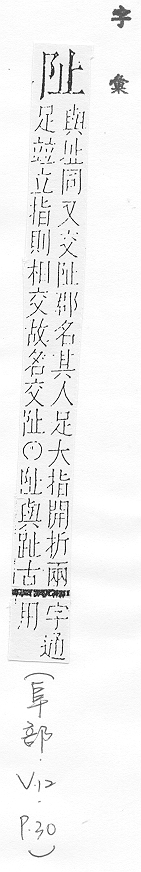 字彙
阯
與址同又交阯郡名其人足大指開折兩
足竝立指則相交故名交阯○阯與趾古
字通
用
(阜部·V.12·P.30)